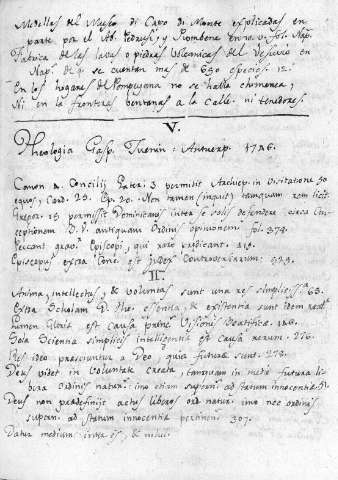 Medallas del Museo di Capo di Monte explicadas en
parte por el Ab. Pedrusi, y Piombena en no. vi. fol. Nap.
Fabrica de las lavas o piedras volcanicas del Vesuvio en
Nap. de q. se cuentan mas de 630 especies. 12.
En los hogares de Pompeyana no se halla chimenea,
Ni en la frontera ventanas a la calle. ni tenedores.
V.
Theologia Gasp. Iuenin: Antuerp. 1746.
Canon 2. Concilij Later. 3 permittit Archiep. in visitatione 50
equos, Card. 25. Ep. 20. Non tamen (inquit) tamquam rem licit.
Gregor. 15 permissit Dominicanis inter se solis defendere circa Con-
ceptionem D. V. antiquam Ordinis opinionem fol. 374.
Peccant grav. Episcopi, qui raro praedicant. 410.
Episcopus extra Conc. est Judex Controversiarum. 929.
II.
Anima, intellectus, & voluntas sunt una res simplicissa. 63.
Extra Scholam D. Tho. essentia, & existentia sunt idem realr.
Lumen Gloriae est causa princ. Visionis Beatificae. 166.
Sola Scientia simplicis intelligentiae est causa rerum. 276.
Res ideo praesciuntur a Deo, quia futurae sunt. 278.
Deus videt in voluntate creata tamquam in medio futura li-
bera Ordinis natur. imo etiam superni ad statum innocentiae
Deus non praedefinijt actus liberos ord. natur. imo nec ordinis
supern. ad statum innocentiae pertinent. 307.
Datur medium inter es, & nihil.